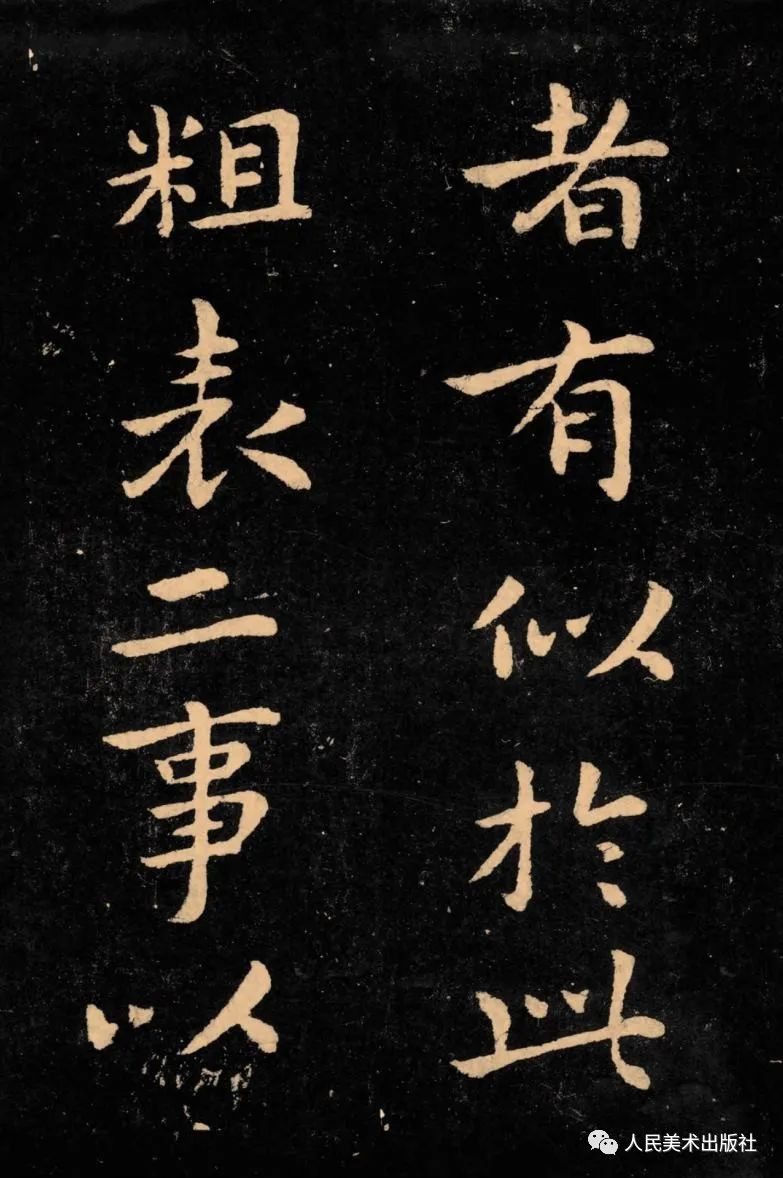 者有似於此
粗表二事以
人民美术出版社